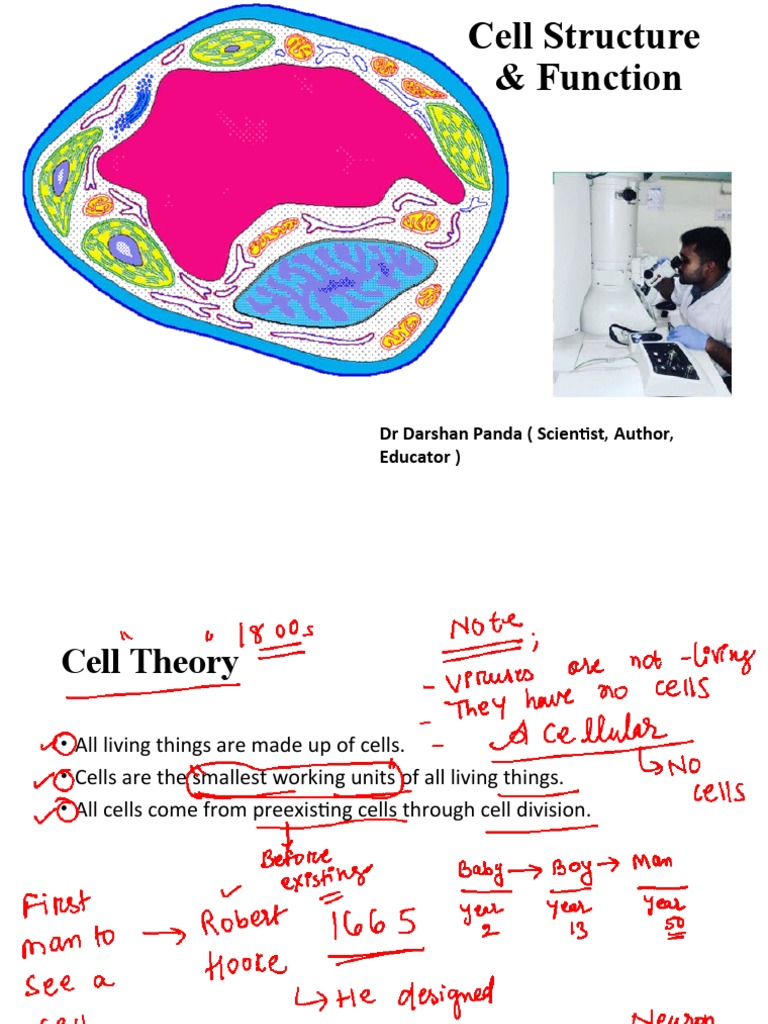 Cell Structure
& Function
Dr Darshan Panda ( Scientist, Author,
Educator )
" " 1800s
Cell Theory
Note ;
- Viruses are not -living
- They have no cells
- Acellular
↳ No
cells
• All living things are made up of cells.
• Cells are the smallest working units of all living things.
• All cells come from preexisting cells through cell division.
Before
existing
Baby → Boy → Man
year year year
2 13 50
First
man to → Robert 1665
see a Hooke
cell
↳ He designed
Neuron